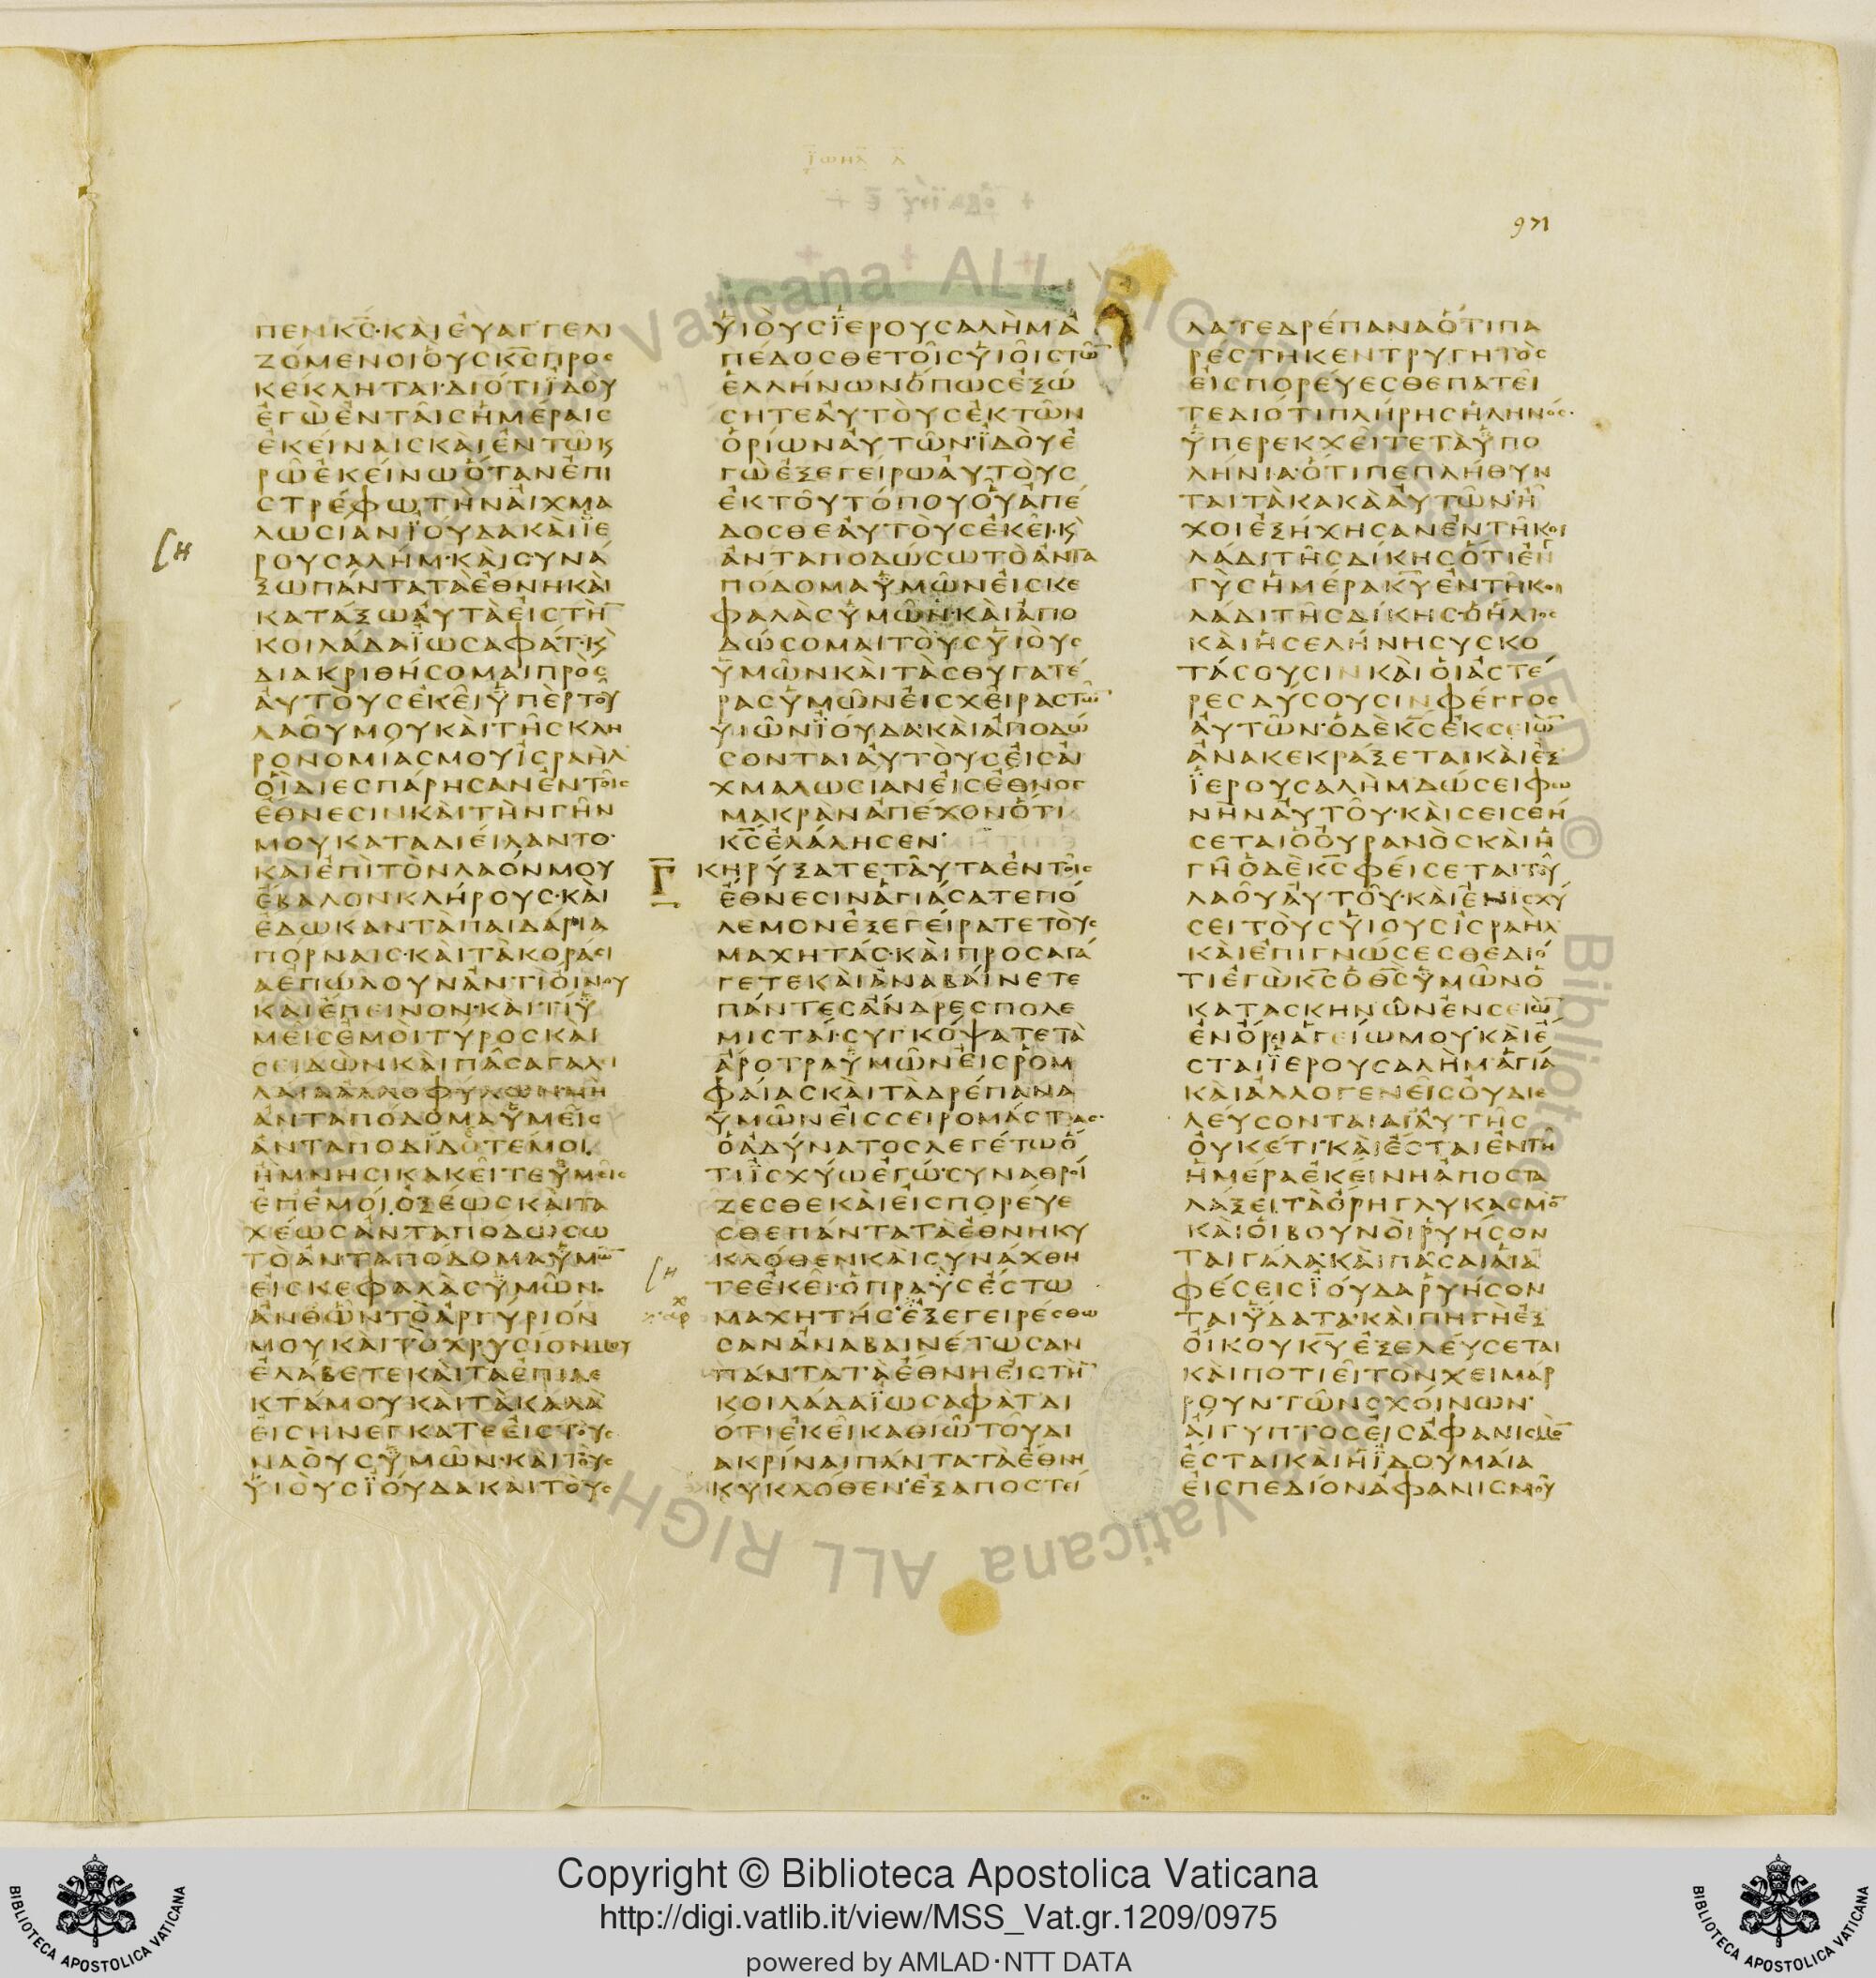 971
ΠΕΝΚϹ·ΚΑΙΕΥΑΓΓΕΛΙ
ΖΟΜΕΝΟΙΟΥϹΚϹΠΡΟϹ
ΚΕΚΛΗΤΑΙ·ΔΙΟΤΙΪΔΟΥ
ΕΓΩΕΝΤΑΙϹΗΜΕΡΑΙϹ
ΕΚΕΙΝΑΙϹΚΑΙΕΝΤΩΚ
ΡΩΕΚΕΙΝΩΟΤΑΝΕΠΙ
ϹΤΡΕΦΩΤΗΝΑΙΧΜΑ
ΛΩϹΙΑΝΪΟΥΔΑΚΑΙΪΕ
ΡΟΥϹΑΛΗΜ·ΚΑΙϹΥΝΑ
ΞΩΠΑΝΤΑΤΑΕΘΝΗΚΑΙ
ΚΑΤΑΞΩΑΥΤΑΕΙϹΤΗ̅
ΚΟΙΛΑΔΑΪΩϹΑΦΑΤ·Κ
ΔΙΑΚΡΙΘΗϹΟΜΑΙΠΡΟϹ
ΑΥΤΟΥϹΕΚΕΙΫΠΕΡΤΟΥ
ΛΑΟΥΜΟΥΚΑΙΤΗϹΚΛΗ
ΡΟΝΟΜΙΑϹΜΟΥΙϹΡΑΗΛ
ΟΙΔΙΕϹΠΑΡΗϹΑΝΕΝΤΟΙϹ
ΕΘΝΕϹΙΝΚΑΙΤΗΝΓΗΝ
ΜΟΥΚΑΤΑΔΙΕΙΛΑΝΤΟ·
ΚΑΙΕΠΙΤΟΝΛΑΟΝΜΟΥ
ΕΒΑΛΟΝΚΛΗΡΟΥϹ·ΚΑΙ
ΕΔΩΚΑΝΤΑΠΑΙΔΑΡΙΑ
ΠΟΡΝΑΙϹ·ΚΑΙΤΑΚΟΡΑϹΙ
ΑΕΠΩΛΟΥΝΑΝΤΙΟΙΝΟΥ
ΚΑΙΕΠΕΙΝΟΝ·ΚΑΙΤΙΫ
ΜΕΙϹΕΜΟΙΤΥΡΟϹΚΑΙ
ϹΕΙΔΩΝΚΑΙΠΑϹΑΓΑΛΙ
ΛΑΙΑΑΛΛΟΦΥΛΩΝΜΗ
ΑΝΤΑΠΟΔΟΜΑΫΜΕΙϹ
ΑΝΤΑΠΟΔΙΔΟΤΕΜΟΙ
ΗΜΝΗϹΙΚΑΚΕΙΤΕΫΜΕΙϹ
ΕΠΕΜΟΙ·ΟΞΕΩϹΚΑΙΤΑ
ΧΕΩϹΑΝΤΑΠΟΔΩϹΩ
ΤΟΑΝΤΑΠΟΔΟΜΑΫΜΩ̅
ΕΙϹΚΕΦΑΛΑϹΫΜΩΝ·
ΑΝΘΩΝΤΟΑΡΓΥΡΙΟΝ
ΜΟΥΚΑΙΤΟΧΡΥϹΙΟΝΜΟΥ
ΕΛΑΒΕΤΕΚΑΙΤΑΕΠΙΛΕ
ΚΤΑΜΟΥΚΑΙΤΑΚΑΛΑ
ΕΙϹΗΝΕΓΚΑΤΕΕΙϹΤΟΥϹ
ΝΑΟΥϹΫΜΩΝ·ΚΑΙΤΟΥϹ
ΫΙΟΥϹΪΟΥΔΑΚΑΙΤΟΥϹ
ΫΙΟΥϹΪΕΡΟΥϹΑΛΗΜΑ
ΠΕΔΟϹΘΕΤΟΙϹΫΙΟΙϹΤΩ̅
ΕΛΛΗΝΩΝΟΠΩϹΕΞΩ
ϹΗΤΕΑΥΤΟΥϹΕΚΤΩΝ
ΟΡΙΩΝΑΥΤΩΝ·ΪΔΟΥΕ
ΓΩΕΞΕΓΕΙΡΩΑΥΤΟΥϹ
ΕΚΤΟΥΤΟΠΟΥΟΥΑΠΕ
ΔΟϹΘΕΑΥΤΟΥϹΕΚΕΙ·Κ
ΑΝΤΑΠΟΔΩϹΩΤΟΑΝΤΑ
ΠΟΔΟΜΑΫΜΩΝΕΙϹΚΕ
ΦΑΛΑϹΫΜΩΝ·ΚΑΙΑΠΟ
ΔΩϹΟΜΑΙΤΟΥϹΫΙΟΥϹ
ΫΜΩΝΚΑΙΤΑϹΘΥΓΑΤΕ
ΡΑϹΫΜΩΝΕΙϹΧΕΙΡΑϹΤΩ̅
ΥΙΩΝΪΟΥΔΑ·ΚΑΙΑΠΟΔΩ
ϹΟΝΤΑΙΑΥΤΟΥϹΕΙϹΑΙ
ΧΜΑΛΩϹΙΑΝΕΙϹΕΘΝΟϹ
ΜΑΚΡΑΝΑΠΕΧΟΝΟΤΙ
ΚϹΕΛΑΛΗϹΕΝ·
Γ ΚΗΡΥΞΑΤΕΤΑΥΤΑΕΝΤΟΙϹ
ΕΘΝΕϹΙΝΑΓΙΑϹΑΤΕΠΟ
ΛΕΜΟΝΕΞΕΓΕΙΡΑΤΕΤΟΥϹ
ΜΑΧΗΤΑϹ·ΚΑΙΠΡΟϹΑΓΑ
ΓΕΤΕΚΑΙΑΝΑΒΑΙΝΕΤΕ
ΠΑΝΤΕϹΑΝΔΡΕϹΠΟΛΕ
ΜΙϹΤΑΙ·ϹΥΓΚΟΨΑΤΕΤΑ
ΑΡΟΤΡΑΫΜΩΝΕΙϹΡΟΜ
ΦΑΙΑϹΚΑΙΤΑΔΡΕΠΑΝΑ
ΫΜΩΝΕΙϹϹΕΙΡΟΜΑϹΤΑϹ·
ΟΑΔΥΝΑΤΟϹΛΕΓΕΤΩΟ
ΤΙΪϹΧΥΩΕΓΩ·ϹΥΝΑΘΡΟΙ
ΖΕϹΘΕΚΑΙΕΙϹΠΟΡΕΥΕ
ϹΘΕΠΑΝΤΑΤΑΕΘΝΗΚΥ
ΚΛΟΘΕΝΚΑΙϹΥΝΑΧΘΗ
ΤΕΕΚΕΙ·ΟΠΡΑΫϹΕϹΤΩ
ΜΑΧΗΤΗϹ·ΕΞΕΓΕΙΡΕϹΘΩ
ϹΑΝΑΝΑΒΑΙΝΕΤΩϹΑΝ
ΠΑΝΤΑΤΑΕΘΝΗΕΙϹΤΗ̅
ΚΟΙΛΑΔΑΪΩϹΑΦΑΤΔΙ
ΟΤΙΕΚΕΙΚΑΘΙΩΤΟΥΔΙ
ΑΚΡΙΝΑΙΠΑΝΤΑΤΑΕΘΝΗ
ΚΥΚΛΟΘΕΝ·ΕΞΑΠΟϹΤΕΙ
ΛΑΤΕΔΡΕΠΑΝΑΟΤΙΠΑ
ΡΕϹΤΗΚΕΝΤΡΥΓΗΤΟϹ
ΕΙϹΠΟΡΕΥΕϹΘΕΠΑΤΕΙ
ΤΕΔΙΟΤΙΠΛΗΡΗϹΗΛΗΝΟϹ·
ΫΠΕΡΕΚΧΕΙΤΕΤΑΫΠΟ
ΛΗΝΙΑ·ΟΤΙΠΕΠΛΗΘΥΝ
ΤΑΙΤΑΚΑΚΑΑΥΤΩΝ·Η
ΧΟΙΕΞΗΧΗϹΑΝΕΝΤΗΚΟΙ
ΛΑΔΙΤΗϹΔΙΚΗϹΟΤΙΕΓ
ΓΥϹΗΜΕΡΑΚΥΕΝΤΗΚΟΙ
ΛΑΔΙΤΗϹΔΙΚΗϹ·ΟΗΛΙΟϹ
ΚΑΙΗϹΕΛΗΝΗϹΥϹΚΟ
ΤΑϹΟΥϹΙΝΚΑΙΟΙΑϹΤΕ
ΡΕϹΔΥϹΟΥϹΙΝΦΕΓΓΟϹ
ΑΥΤΩΝ·ΟΔΕΚϹΕΚϹΕΙΩ̅
ΑΝΑΚΕΚΡΑΞΕΤΑΙΚΑΙΕΞ
ΪΕΡΟΥϹΑΛΗΜΔΩϹΕΙΦΩ
ΝΗΝΑΥΤΟΥ·ΚΑΙϹΕΙϹΘΗ
ϹΕΤΑΙΟΟΥΡΑΝΟϹΚΑΙΗ
ΓΗΟΔΕΚϹΦΕΙϹΕΤΑΙΤΟΥ
ΛΑΟΥΑΥΤΟΥ·ΚΑΙΕΝΙϹΧΥ
ϹΕΙΤΟΥϹΫΙΟΥϹΙϹΡΑΗΛ
ΚΑΙΕΠΙΓΝΩϹΕϹΘΕΔΙΟ
ΤΙΕΓΩΚϹΟΘϹΫΜΩΝΟ
ΚΑΤΑϹΚΗΝΩΝΕΝϹΕΙΩ̅
ΕΝΟΡΙΑΓΕΙΩΜΟΥ·ΚΑΙΕ
ϹΤΑΙΪΕΡΟΥϹΑΛΗΜΑΓΙΑ
ΚΑΙΑΛΛΟΓΕΝΕΙϹΟΥΔΙΕ
ΛΕΥϹΟΝΤΑΙΔΙΑΥΤΗϹ
ΟΥΚΕΤΙ·ΚΑΙΕϹΤΑΙΕΝΤΗ
ΗΜΕΡΑΕΚΕΙΝΗΑΠΟϹΤΑ
ΛΑΞΕΙΤΑΟΡΗΓΛΥΚΑϹΜΟ̅
ΚΑΙΟΙΒΟΥΝΟΙΡΥΗϹΟΝ
ΤΑΙΓΑΛΑ·ΚΑΙΠΑϹΑΙΑΙΑ
ΦΕϹΕΙϹΪΟΥΔΑΡΥΗϹΟΝ
ΤΑΙΫΔΑΤΑ·ΚΑΙΠΗΓΗΕΞ
ΟΙΚΟΥΚΥΕΞΕΛΕΥϹΕΤΑΙ
ΚΑΙΠΟΤΙΕΙΤΟΝΧΕΙΜΑΡ
ΡΟΥΝΤΩΝϹΧΟΙΝΩΝ·
ΑΙΓΥΠΤΟϹΕΙϹΑΦΑΝΙϹΜΟ̅
ΕϹΤΑΙΚΑΙΗΪΔΟΥΜΑΙΑ
ΕΙϹΠΕΔΙΟΝΑΦΑΝΙϹΜΟΥ
Copyright © Biblioteca Apostolica Vaticana
http://digi.vatlib.it/view/MSS_Vat.gr.1209/0975
powered by AMLAD·NTT DATA
BIBLIOTECA APOSTOLICA VATICANA
BIBLIOTECA APOSTOLICA VATICANA